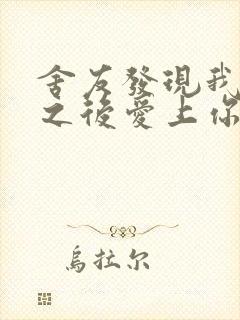 舍友發現我
之後愛上你
烏拉尔